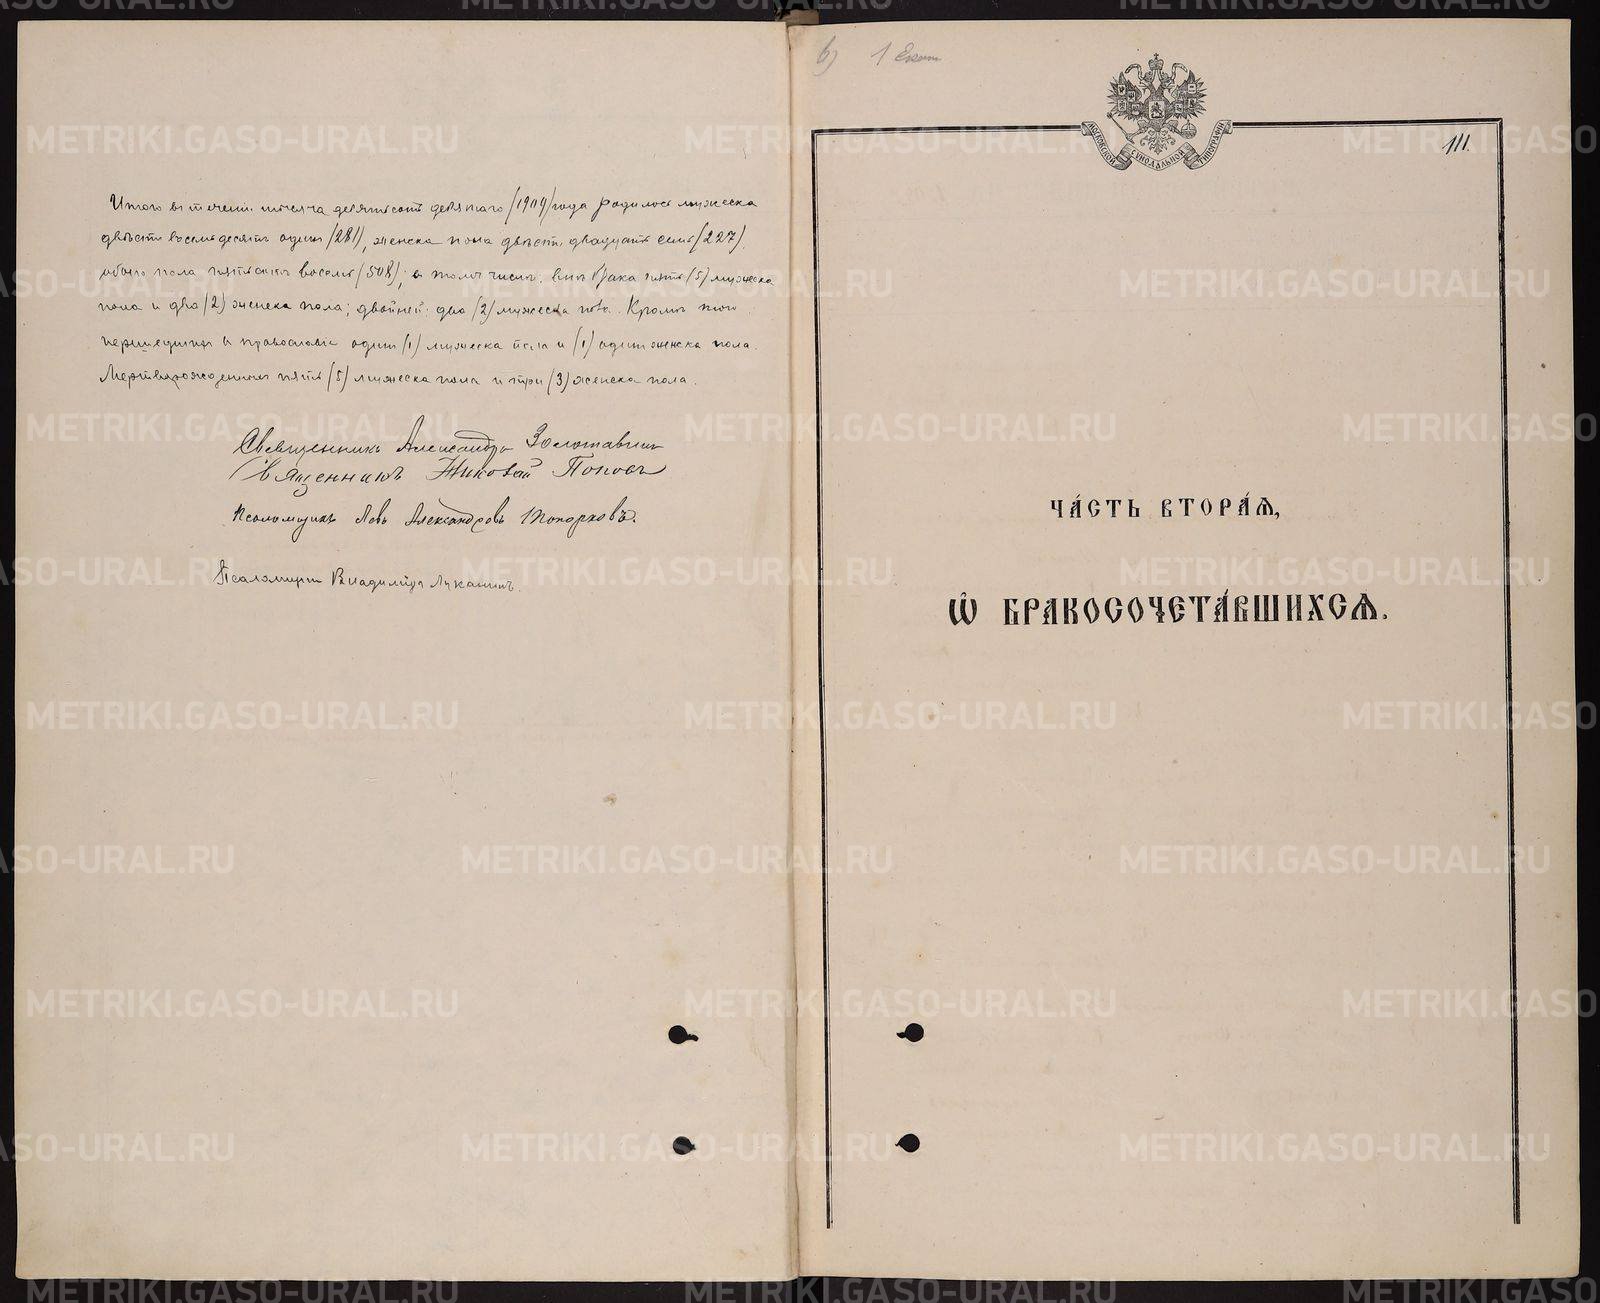 Итого в теченіи тысяча девятьсотъ девятаго (1909) года родилось мужеска
двѣсти восемьдесятъ одинъ (281), женска пола двѣсти двадцать семь (227),
обоего пола пятьсотъ восемь (508); в томъ числѣ: внѣ брака пять (5) мужеска
пола и два (2) женска пола; двойней: два (2) мужеска пола. Кромѣ того
перешедшихъ в православіе одинъ (1) мужеска пола и (1) одинъ женска пола.
Мертворожденныхъ пять (5) мужеска пола и три (3) женска пола.
Священникъ Александръ Золотавинъ
Священникъ Николай Поповъ
Псаломщикъ Левъ Александровъ Топорковъ.
Псаломщикъ Владиміръ Луканинъ.
в) 1 Екат
МОСКОВСКОЙ СѴНОДАЛЬНОЙ ТИПОГРАФІИ
111.
ЧА́СТЬ ВТОРА́Ѧ,
Ѽ БРАКОСОЧЕТА́ВШИХСѦ.
METRIKI.GASO-URAL.RU